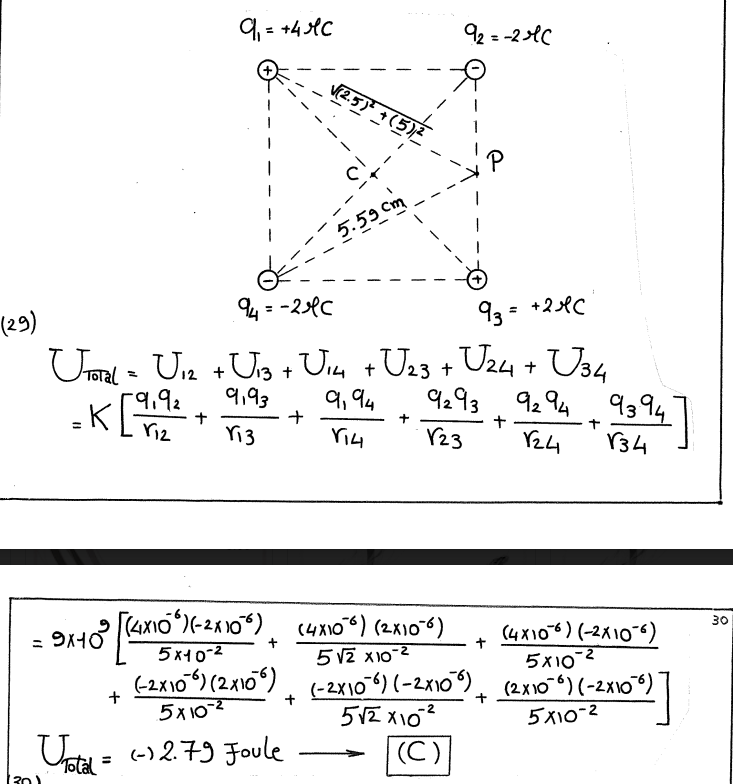 q₁ = +4μC
q₂ = -2μC
+
-
√(2.5)² + (5)²
C
P
5.59 cm
-
+
q₄ = -2μC
q₃ = +2μC
(29)
U_Total = U₁₂ + U₁₃ + U₁₄ + U₂₃ + U₂₄ + U₃₄
= K [ q₁q₂/r₁₂ + q₁q₃/r₁₃ + q₁q₄/r₁₄ + q₂q₃/r₂₃ + q₂q₄/r₂₄ + q₃q₄/r₃₄ ]
30
= 9×10⁹ [ (4×10⁻⁶)(-2×10⁻⁶)/5×10⁻² + (4×10⁻⁶)(2×10⁻⁶)/5√2 ×10⁻² + (4×10⁻⁶)(-2×10⁻⁶)/5×10⁻²
+ (-2×10⁻⁶)(2×10⁻⁶)/5×10⁻² + (-2×10⁻⁶)(-2×10⁻⁶)/5√2 ×10⁻² + (2×10⁻⁶)(-2×10⁻⁶)/5×10⁻² ]
U_Total = (-) 2.79 Joule ⟶ (C)
(30)